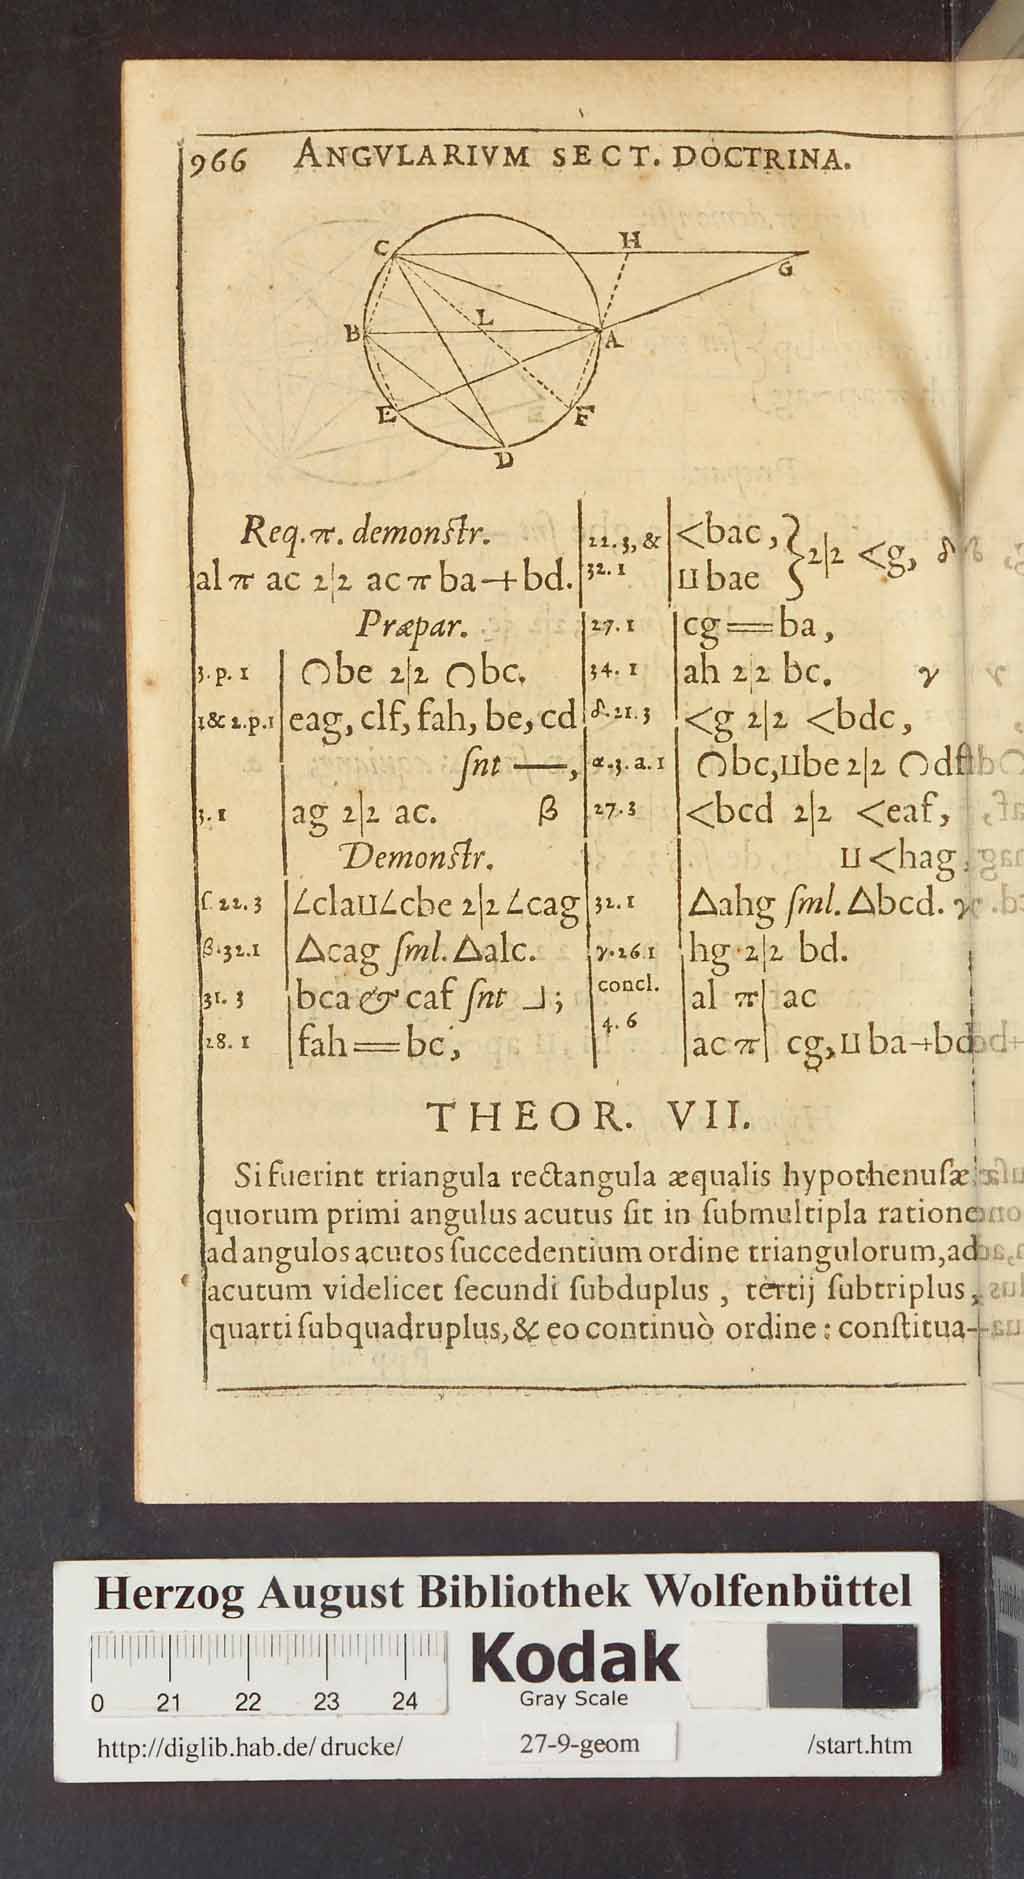 966 ANGVLARIVM SECT. DOCTRINA.
C H G
B L A
E F
D
Req. π. demonstr.
al π ac 2|2 ac π ba+bd.
Præpar.
3. p. 1 | ∩be 2|2 ∩bc.
1&2.p.1 | eag, clf, fah, be, cd
snt —,
3. 1 | ag 2|2 ac. β
Demonstr.
ſ. 22. 3 | ∠cla⊔∠cbe 2|2 ∠cag
β. 32. 1 | △cag sml. △alc.
31. 3 | bca & caf snt ⅃;
28. 1 | fah == bc,
22. 3, & 32. 1 | <bac, ⊔bae } 2|2 <g, δ
27. 1 | cg == ba,
34. 1 | ah 2|2 bc. γ
δ. 21. 3 | <g 2|2 <bdc,
α. 3. a. 1 | ∩bc, ⊔be 2|2 ∩df
27. 3 | <bcd 2|2 <eaf,
⊔<hag,
32. 1 | △ahg sml. △bcd.
γ. 26. 1 | hg 2|2 bd.
concl. | al π| ac
4. 6 | ac π| cg, ⊔ba+bd
THEOR. VII.
Si fuerint triangula rectangula æqualis hypothenusæ
quorum primi angulus acutus sit in submultipla ratione
ad angulos acutos succedentium ordine triangulorum, ad
acutum videlicet secundi subduplus, tertij subtriplus,
quarti subquadruplus, & eo continuò ordine: constitua-
Herzog August Bibliothek Wolfenbüttel
0 21 22 23 24
Kodak
Gray Scale
http://diglib.hab.de/drucke/ 27-9-geom /start.htm